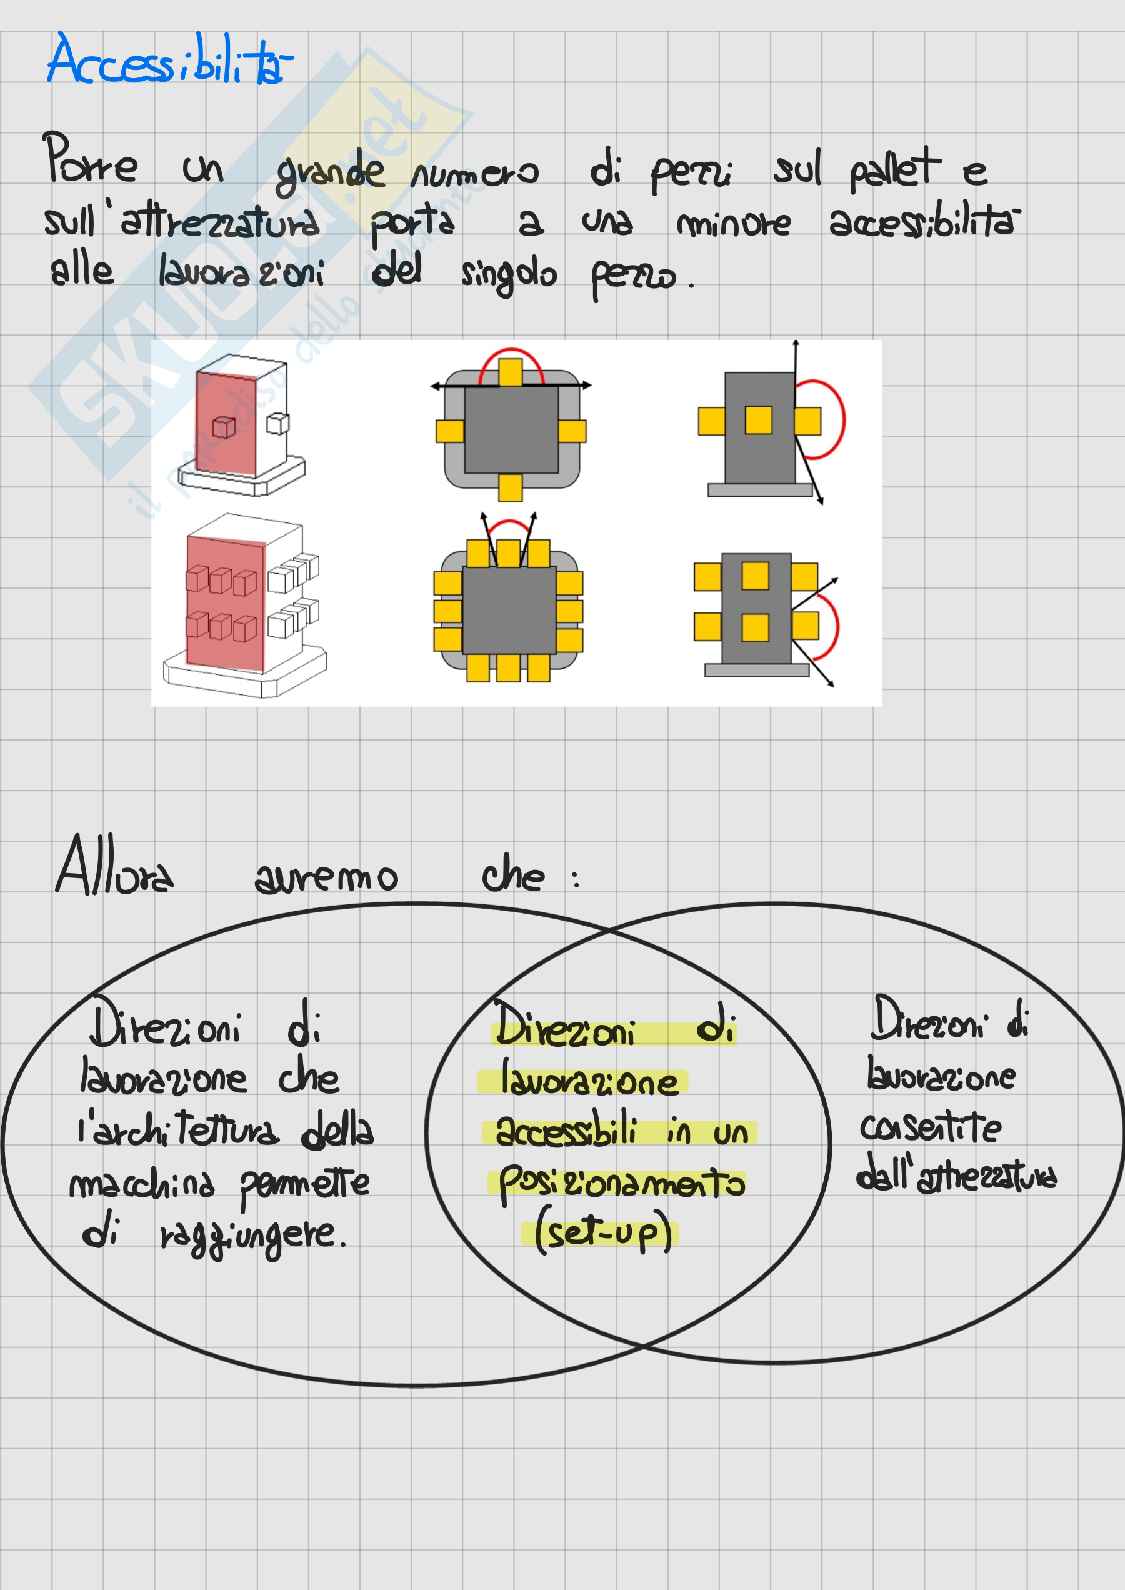 Accessibilità
Porre un grande numero di pezzi sul pallet e
sull'attrezzatura porta a una minore accessibilità
alle lavorazioni del singolo pezzo.
SKUOLA.net
il paradiso dello studente
Allora avremo che :
Direzioni di
lavorazione che
l'architettura della
macchina permette
di raggiungere.
Direzioni di
lavorazione
accessibili in un
posizionamento
(set-up)
Direzioni di
lavorazione
consentite
dall'attrezzatura